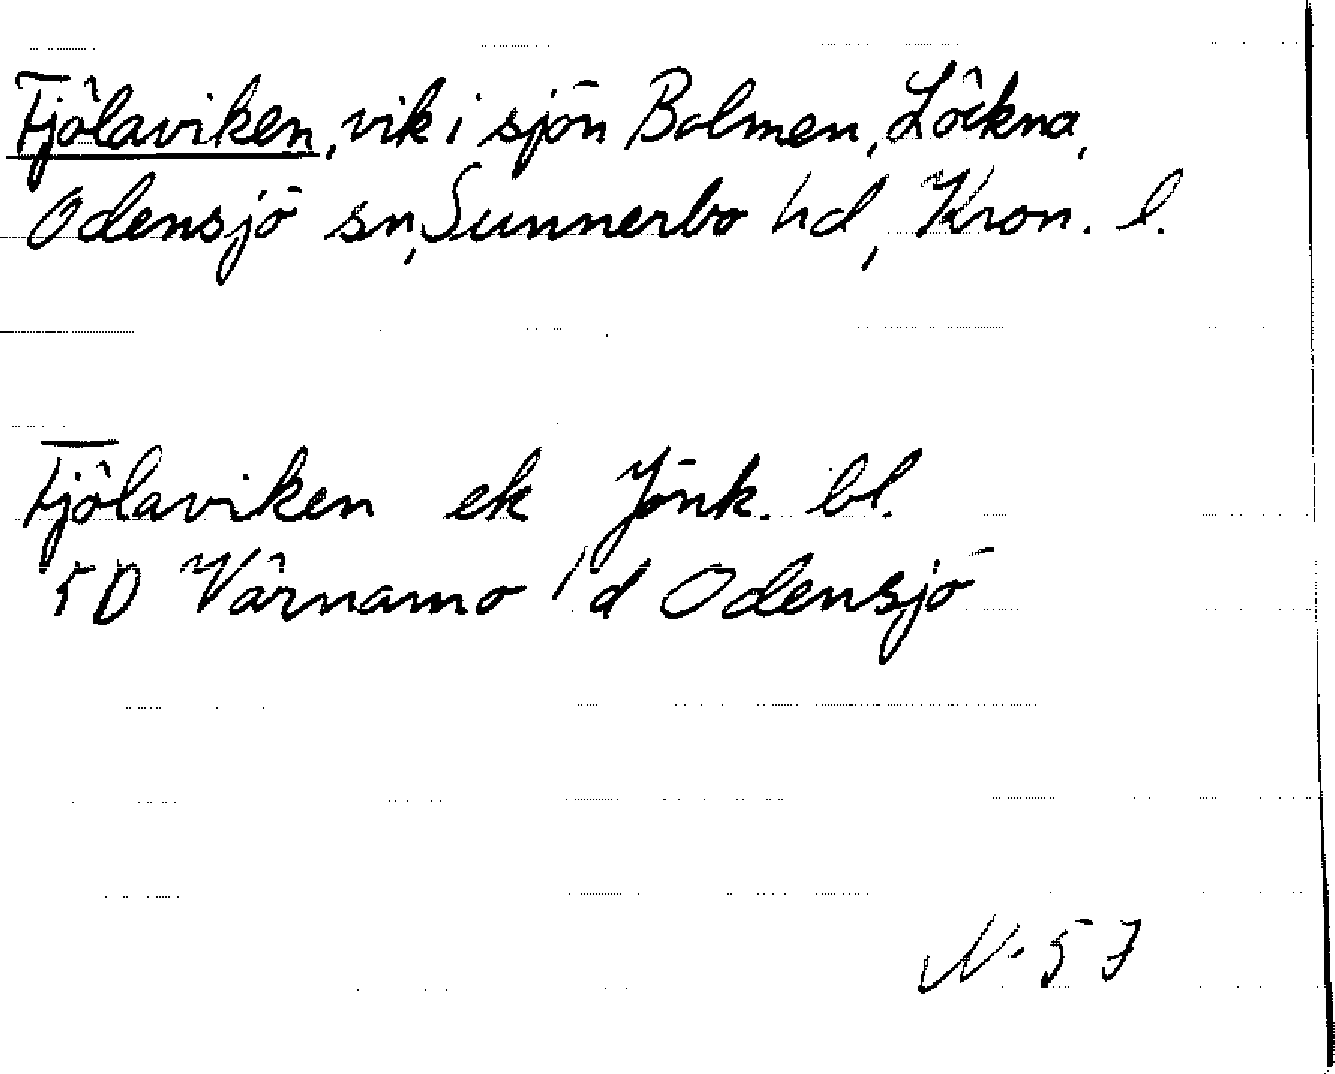 Fjölaviken, vik i sjön Bolmen, Löckna,
Odensjö sn, Sunnerbo hd, Kron. l.
Fjölaviken ek Jönk. bl.
5D Värnamo 1 d Odensjö
N. 57